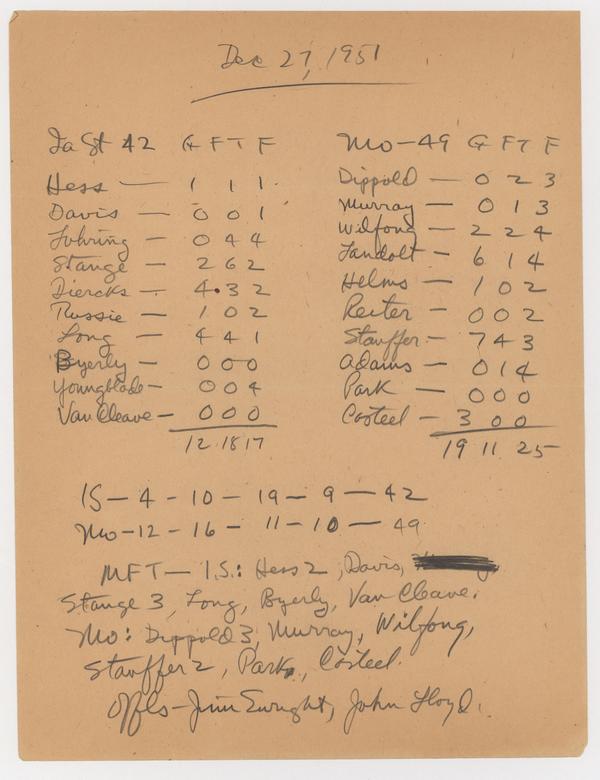 Dec 27, 1951
Ia St 42 G F T F
Hess — 1 1 1
Davis — 0 0 1
Fuhring — 0 4 4
Stange — 2 6 2
Diercks — 4 3 2
Russie — 1 0 2
Long — 4 4 1
Byerly — 0 0 0
Youngblade — 0 0 4
Van Cleave — 0 0 0
12 18 17
Mo — 49 G F T F
Dippold — 0 2 3
Murray — 0 1 3
Wilfong — 2 2 4
Landolt — 6 1 4
Helms — 1 0 2
Reiter — 0 0 2
Stauffer — 7 4 3
Adams — 0 1 4
Park — 0 0 0
Costeel — 3 0 0
19 11 25
IS — 4 - 10 - 19 - 9 — 42
Mo - 12 - 16 - 11 - 10 — 49
MFT — I.S.: Hess 2, Davis,
Stange 3, Long, Byerly, Van Cleave.
Mo: Dippold 3, Murray, Wilfong,
Stauffer 2, Park, Costeel.
Offls - Jim Enright, John Lloyd.